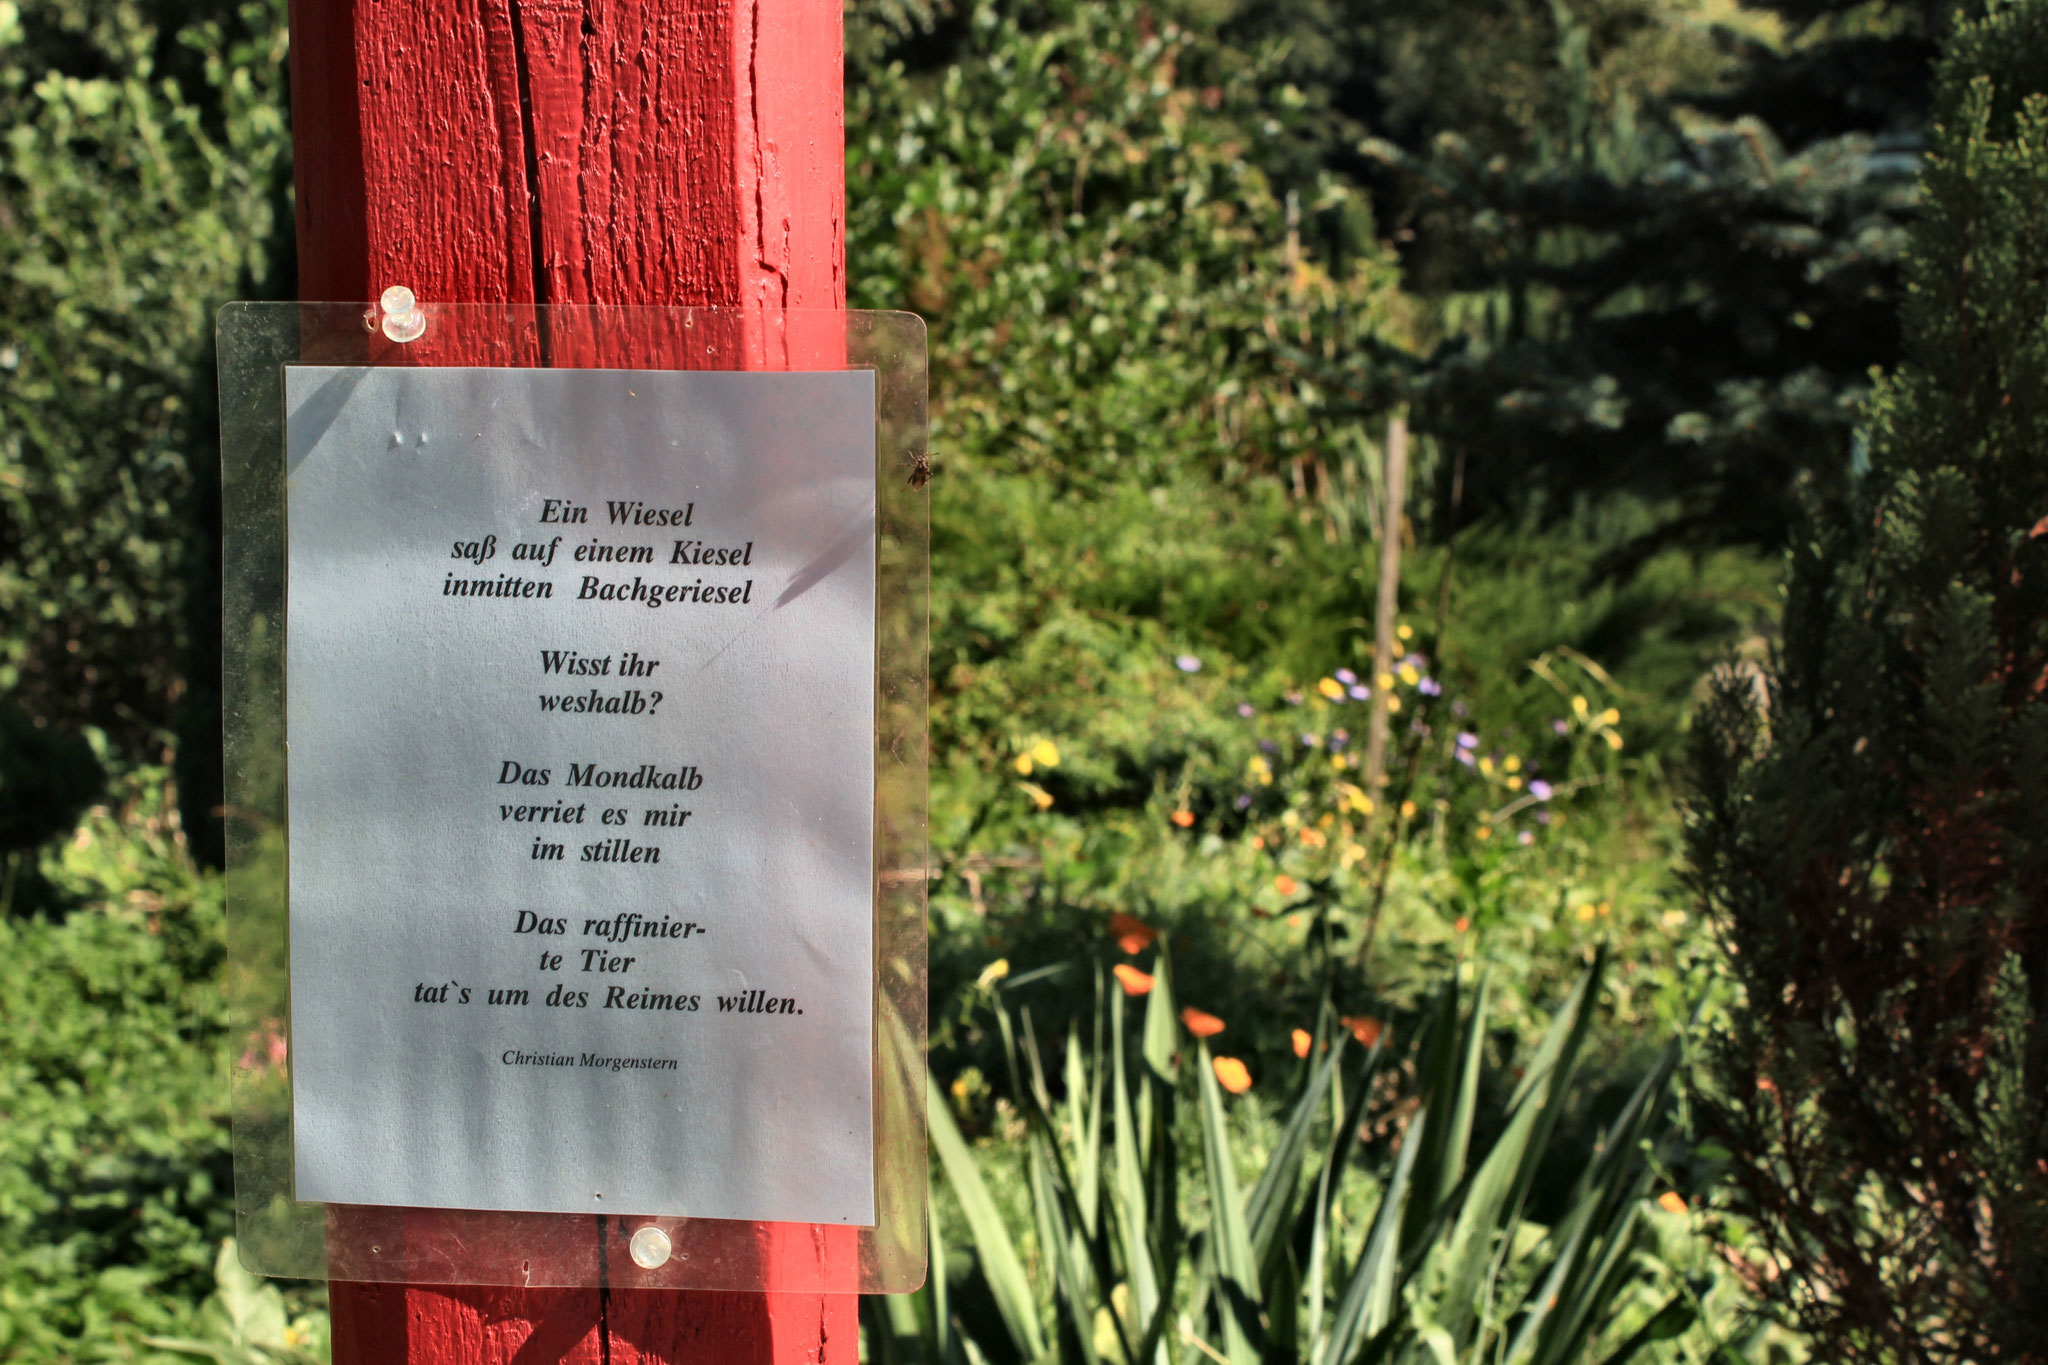 Ein Wiesel
saß auf einem Kiesel
inmitten Bachgeriesel
Wisst ihr
weshalb?
Das Mondkalb
verriet es mir
im stillen
Das raffinier-
te Tier
tat`s um des Reimes willen.
Christian Morgenstern